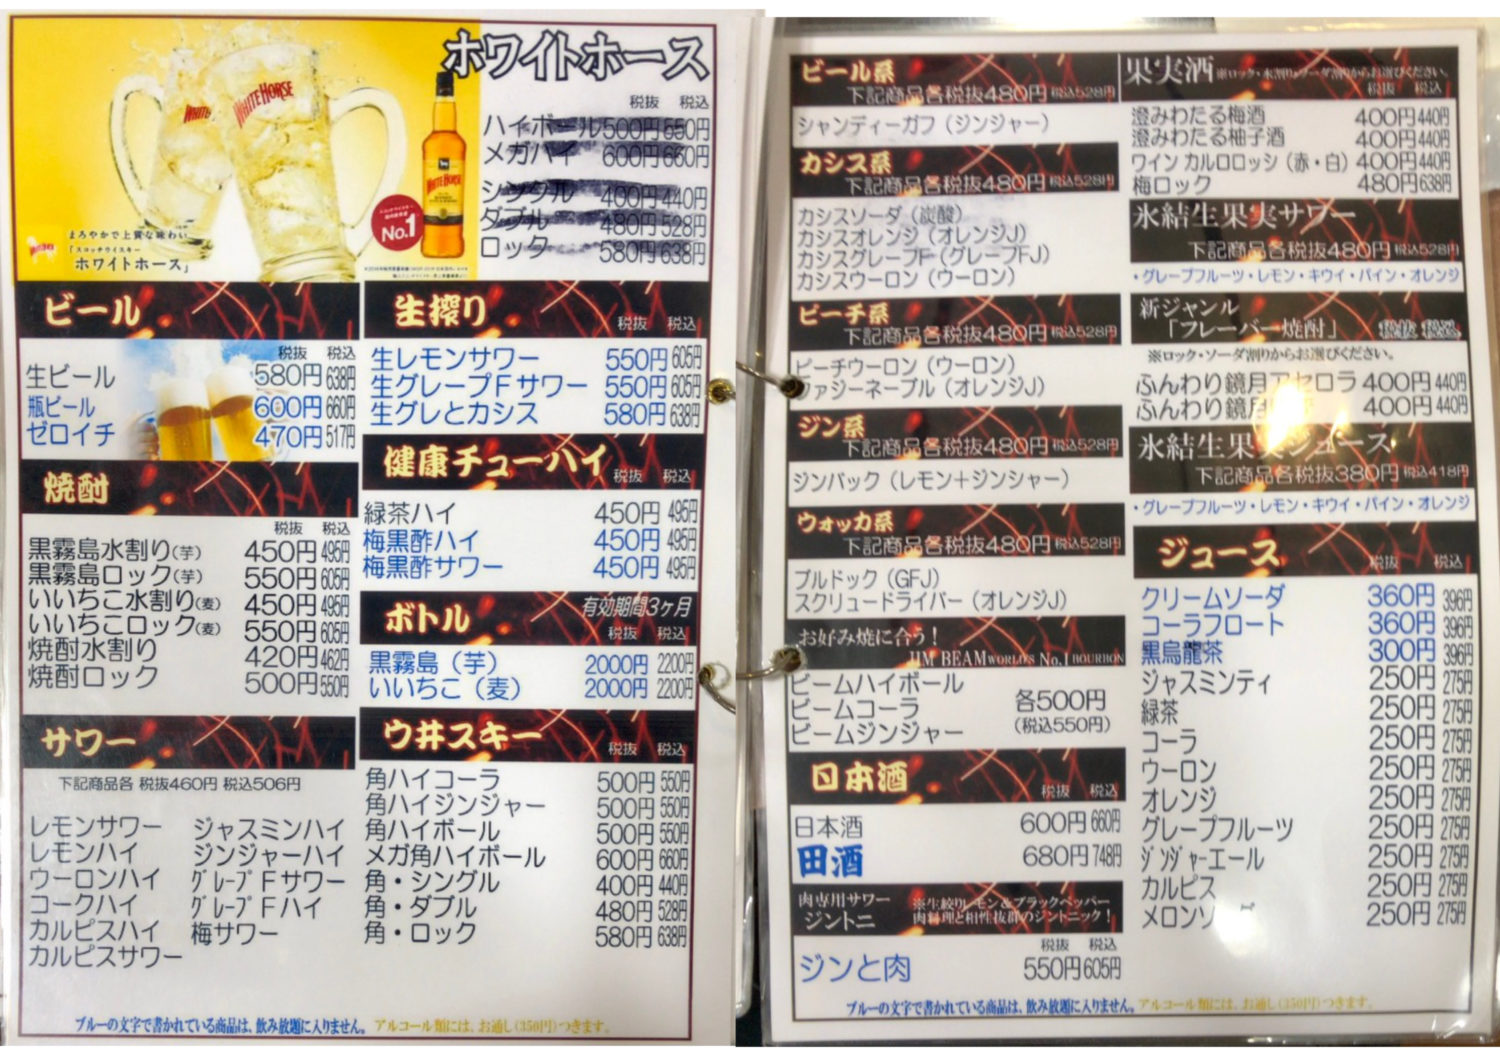 ホワイトホース
WHITE HORSE
WHITE HORSE
No.1
まろやかで上質な味わい
「スコッチウイスキー
ホワイトホース」
税抜 税込
ハイボール 500円 550円
メガハイ 600円 660円
シングル 400円 440円
ダブル 480円 528円
ロック 580円 638円
ビール
税抜 税込
生ビール 580円 638円
瓶ビール 600円 660円
ゼロイチ 470円 517円
焼酎
税抜 税込
黒霧島水割り(芋) 450円 495円
黒霧島ロック(芋) 550円 605円
いいちこ水割り(麦) 450円 495円
いいちこロック(麦) 550円 605円
焼酎水割り 420円 462円
焼酎ロック 500円 550円
サワー
下記商品各 税抜460円 税込506円
レモンサワー ジャスミンハイ
レモンハイ ジンジャーハイ
ウーロンハイ グレープFサワー
コークハイ グレープFハイ
カルピスハイ 梅サワー
カルピスサワー
生搾り 税抜 税込
生レモンサワー 550円 605円
生グレープFサワー 550円 605円
生グレとカシス 580円 638円
健康チューハイ 税抜 税込
緑茶ハイ 450円 495円
梅黒酢ハイ 450円 495円
梅黒酢サワー 450円 495円
ボトル 有効期間3ヶ月
税抜 税込
黒霧島(芋) 2000円 2200円
いいちこ(麦) 2000円 2200円
ウ井スキー 税抜 税込
角ハイコーラ 500円 550円
角ハイジンジャー 500円 550円
角ハイボール 500円 550円
メガ角ハイボール 600円 660円
角・シングル 400円 440円
角・ダブル 480円 528円
角・ロック 580円 638円
ブルーの文字で書かれている商品は、飲み放題に入りません。 アルコール類には、お通し(350円)つきます。
ビール系
下記商品各税抜480円 税込528円
シャンディーガフ(ジンジャー)
カシス系
下記商品各税抜480円 税込528円
カシスソーダ(炭酸)
カシスオレンジ(オレンジJ)
カシスグレープF(グレープFJ)
カシスウーロン(ウーロン)
ピーチ系
下記商品各税抜480円 税込528円
ピーチウーロン(ウーロン)
ファジーネーブル(オレンジJ)
ジン系
下記商品各税抜480円 税込528円
ジンバック(レモン+ジンジャー)
ウォッカ系
下記商品各税抜480円 税込528円
ブルドック(GFJ)
スクリュードライバー(オレンジJ)
お好み焼に合う!
JIM BEAM WORLD'S No.1 BOURBON
ビームハイボール
ビームコーラ 各500円
ビームジンジャー (税込550円)
日本酒 税抜 税込
日本酒 600円 660円
田酒 680円 748円
肉専用サワー ※生絞りレモン&ブラックペッパー
ジントニ 肉料理と相性抜群のジントニック!
税抜 税込
ジンと肉 550円 605円
果実酒 ※ロック・水割り・ソーダ割りからお選びください。
税抜 税込
澄みわたる梅酒 400円 440円
澄みわたる柚子酒 400円 440円
ワイン カルロロッシ(赤・白) 400円 440円
梅ロック 480円 638円
氷結生果実サワー
下記商品各税抜480円 税込528円
・グレープフルーツ・レモン・キウイ・パイン・オレンジ
新ジャンル
「フレーバー焼酎」 税抜 税込
※ロック・ソーダ割りからお選びください。
ふんわり鏡月アセロラ 400円 440円
ふんわり鏡月 400円 440円
氷結生果実ジュース
下記商品各税抜380円 税込418円
・グレープフルーツ・レモン・キウイ・パイン・オレンジ
ジュース 税抜 税込
クリームソーダ 360円 396円
コーラフロート 360円 396円
黒烏龍茶 300円 396円
ジャスミンティ 250円 275円
緑茶 250円 275円
コーラ 250円 275円
ウーロン 250円 275円
オレンジ 250円 275円
グレープフルーツ 250円 275円
ジンジャーエール 250円 275円
カルピス 250円 275円
メロンソーダ 250円 275円
ブルーの文字で書かれている商品は、飲み放題に入りません。 アルコール類には、お通し(350円)つきます。